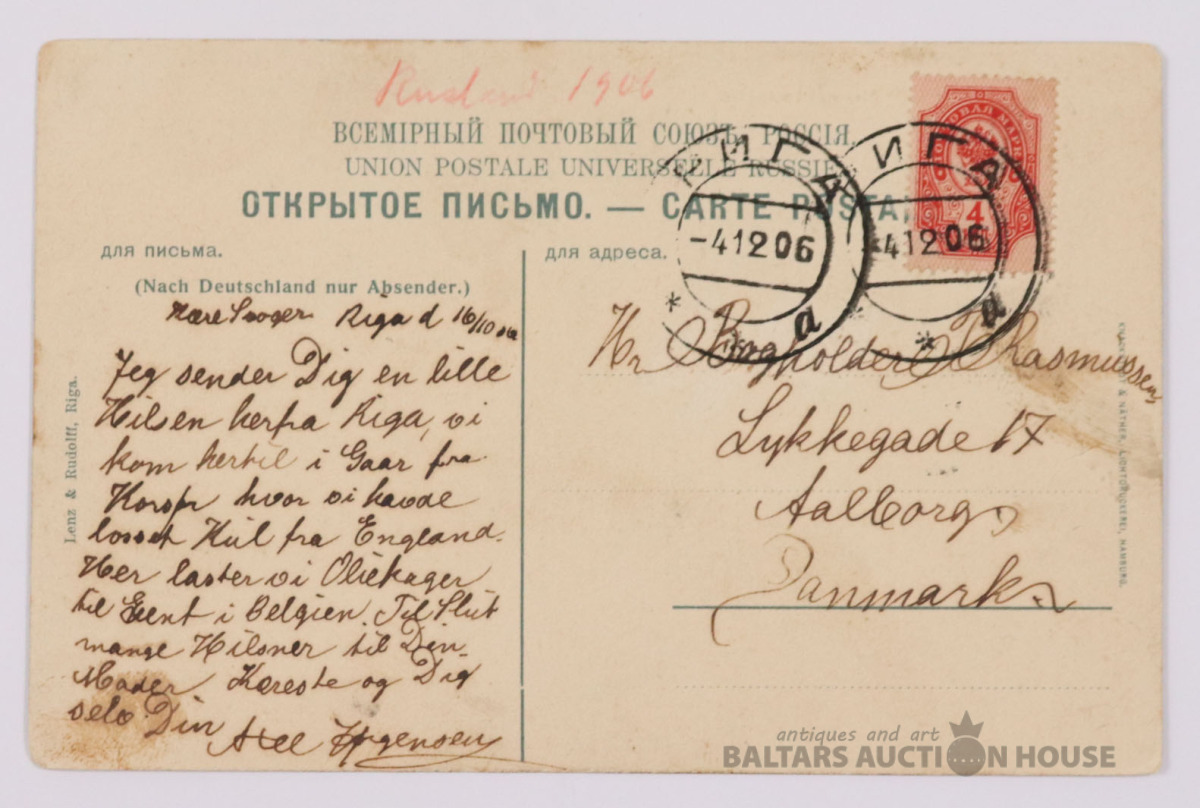 Rusland 1906
ВСЕМІРНЫЙ ПОЧТОВЫЙ СОЮЗЪ. РОССІЯ.
UNION POSTALE UNIVERSELLE RUSSIE
ОТКРЫТОЕ ПИСЬМО. — CARTE POSTA
РИГА
-41206
а
ИГА
41206
а
ПОЧТОВАЯ МАРКА
4
для письма.
(Nach Deutschland nur Absender.)
Kære Riga d 16/10 06
Jeg sender Dig en lille
Hilsen herfra Riga, vi
kom hertil i Gaar fra
Korsør hvor vi havde
losset Kul fra England.
Her laster vi Oliekager
til Gent i Belgien. Til Slut
mange Hilsner til Din
Moder, Kæreste og Dig
selv. Din
Lenz & Rudolff, Riga.
для адреса.
Hr Rasmussen
Lykkegade 17
Aalborg
Danmark
LICHTDRUCKEREI, HAMBURG.
antiques and art
BALTARS AUCTION HOUSE